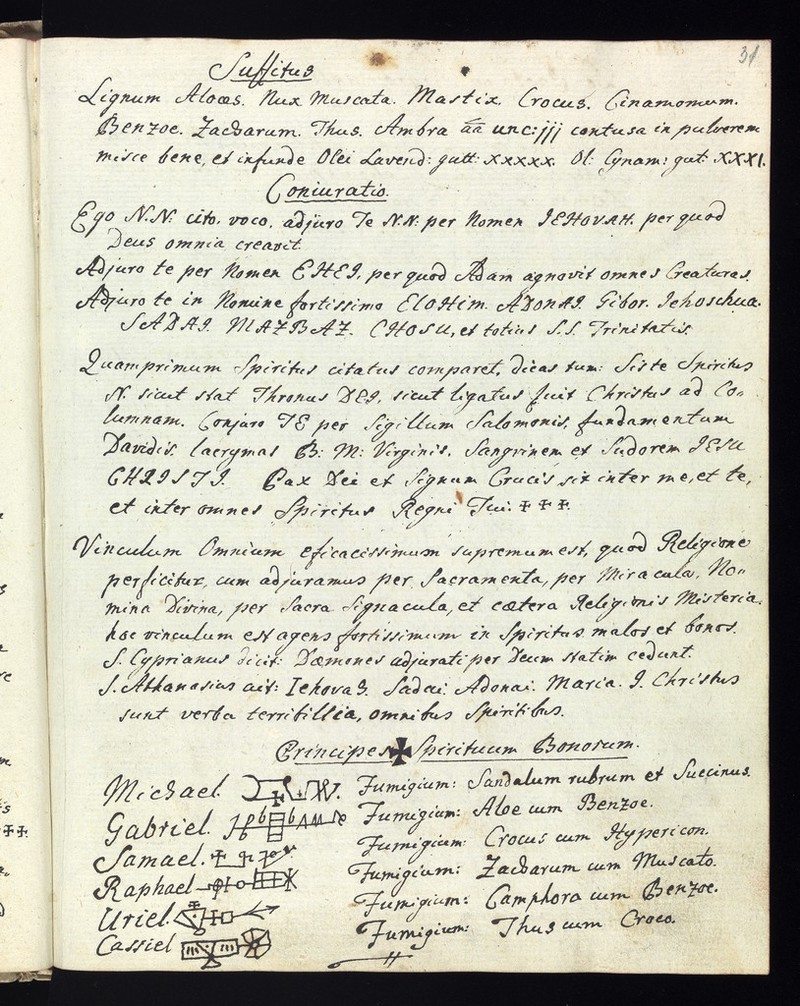 31
Suffitus
Lignum Aloes. Nux Muscata. Mastix. Crocus. Cinamomum.
Benzoe. Zacbarum. Thus. Ambra āā unc: jjj contusa in pulverem
misce bene, et infunde Olei Lavend: gutt: XXXXX. Ol: Cynam: gut: XXXI.
Coniuratio.
Ego N.N: cito, voco, adjuro Te N.N: per Nomen JEHOVAH. per quod
Deus omnia creavit.
Adjuro te per Nomen EHEJ. per quod Adam agnovit omnes Creaturas.
Adjuro te in Nomine fortissimo EloHim. ADONAJ. Gibor. Jehoschua.
SADAJ. MAZBAZ. CHOSU, et totius S.S. Trinitatis.
Quamprimum Spiritus citatus comparet, dicas tum: Siste Spiritus
N. sicut stat Thronus DEJ, sicut ligatus fuit Christus ad Co=
lumnam. Conjuro TE per Sigillum Salomonis, fundamentum
Davidis, lacrymas B: M: Virginis, Sangvinem et Sudorem JESU
CHRISTJ. Pax Dei et Signum Crucis sit inter me, et te,
et inter omnes Spiritus Regni Tui. ✠ ✠ ✠.
Vinculum Omnium eficacissimum supremum est, quod Religione
perficitur, cum adjuramus per Sacramenta, per Miracula, No=
mina Divina, per Sacra Signacula, et cætera Religionis Misteria.
hoc vinculum est agens fortissimum in Spiritus malos et bonos.
S. Cyprianus dicit: Dæmones adjurati per Deum statim cedunt.
S. Athanasius ait: Iehovas. Sadai. Adonai. Maria. J. Christus
sunt verba terribillia, omnibus Spiritibus.
Principes ✠ Spirituum Bonorum.
Michael. Fumigium: Sandalum rubrum et Succinus.
Gabriel. Fumigium: Aloe cum Benzoe.
Samael. Fumigium: Crocus cum Hypericon.
Raphael Fumigium: Zacbarum cum Muscato.
Uriel. Fumigium: Camphora cum Benzoe.
Cassiel Fumigium: Thus cum Croco.